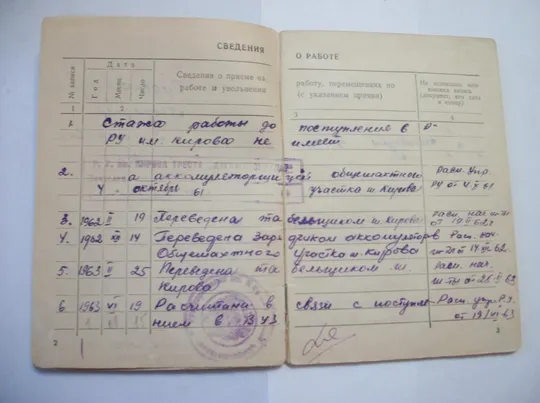 СВЕДЕНИЯ О РАБОТЕ
№ записи
Дата
Год
Месяц
Число
Сведения о приеме на работу, перемещениях по
работе и увольнении (с указанием причин)
На основании чего
внесена запись
(документ, его дата
и номер)
1 2 3 4
1. Стажа работы до поступления в
РУ им. Кирова не имеет
2. аккомуляторщицей общешахтного
4 октября 61. участка ш. Кирова
Расп. Упр.
РУ от
3. 1962 II 19 Переведена табельщиком ш. Кирова
Расп. нач. ш-ты
4. 1962 XII 14 Переведена зарядчиком аккомуляторов
Общешахтного участка ш. Кирова
Расп. нач.
ш-ты от 14 XII 62.
5. 1963 II 25 Переведена табельщиком ш.
Кирова
Расп. нач.
ш-ты от 25 II 63
6. 1963 VI 19 Расчитана в связи с поступлением
в ВУЗ
Расп. упр. РУ.
от 19 VI 63
2
3